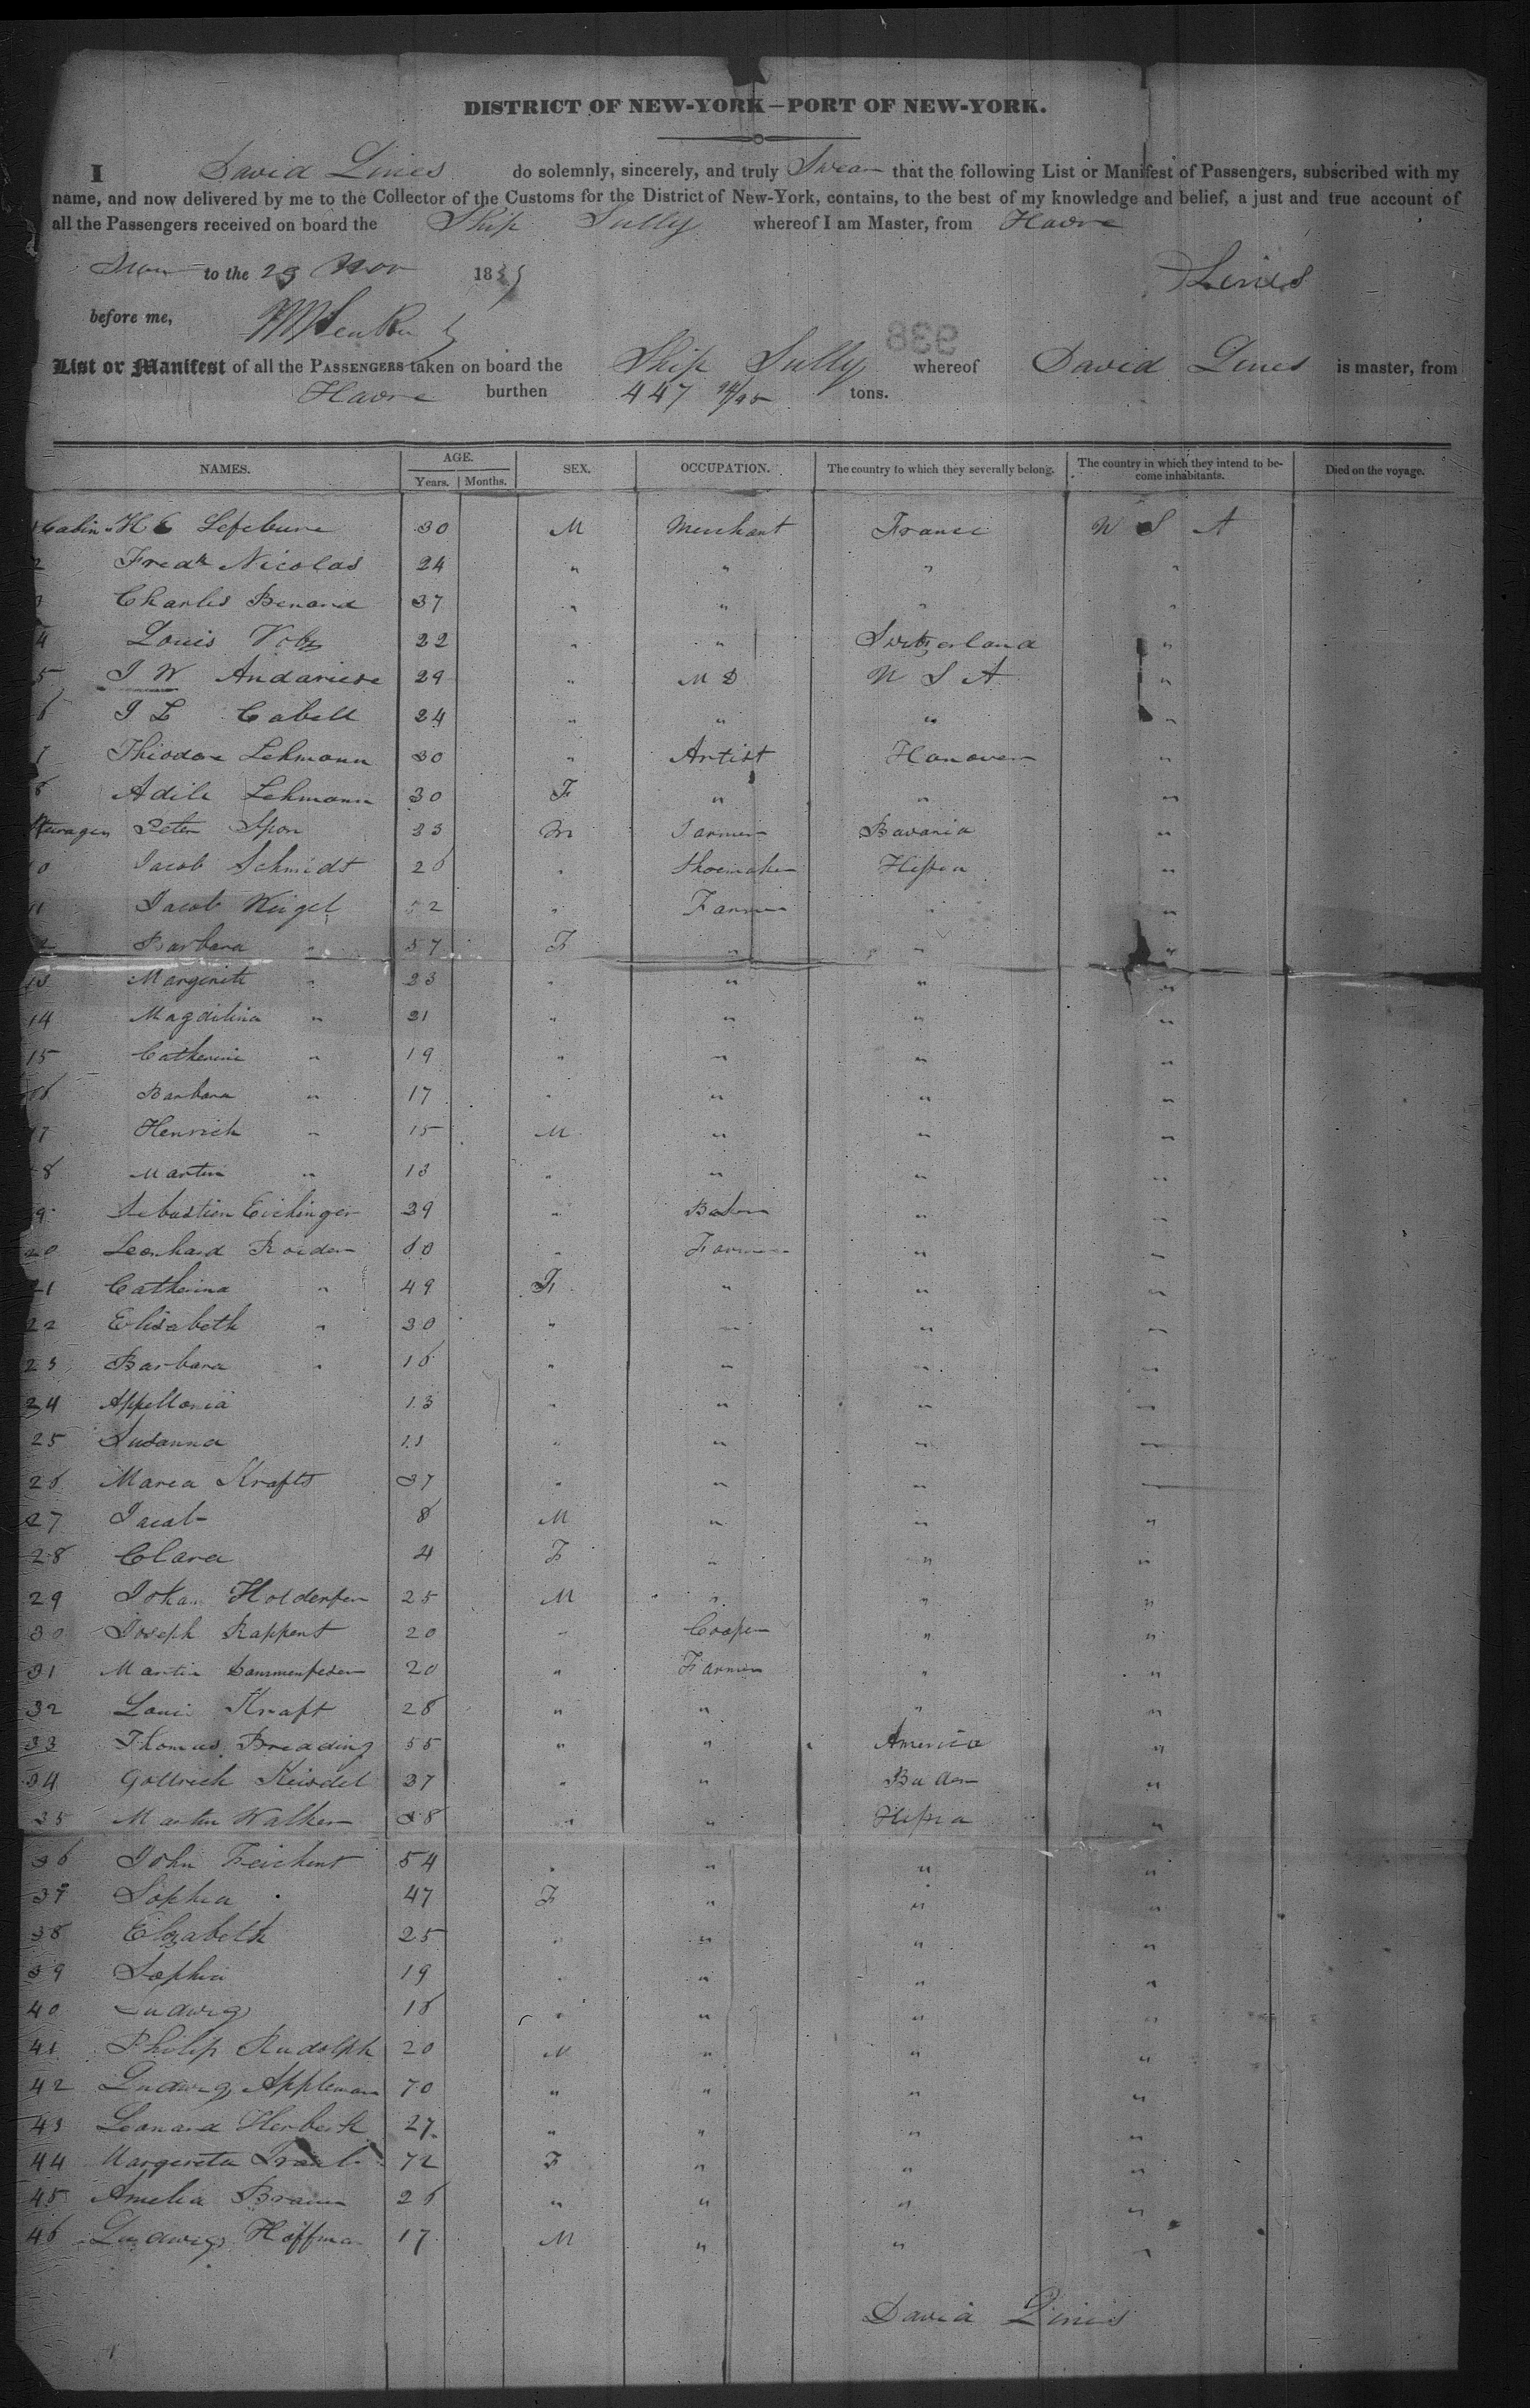 DISTRICT OF NEW-YORK—PORT OF NEW-YORK.
I David Lines do solemnly, sincerely, and truly Swear that the following List or Manifest of Passengers, subscribed with my
name, and now delivered by me to the Collector of the Customs for the District of New-York, contains, to the best of my knowledge and belief, a just and true account of
all the Passengers received on board the Ship Sully whereof I am Master, from Havre
to the 29 Nov 18
D Lines
before me,
938
List or Manifest of all the PASSENGERS taken on board the Ship Sully whereof David Lines is master, from
Havre burthen 447 tons.
NAMES. AGE. SEX. OCCUPATION. The country to which they severally belong. The country in which they intend to be- come inhabitants. Died on the voyage.
Years. Months.
Cabin H E Lefebure 30 M Merchant France U S A
2 Fredk Nicolas 24 " " " "
3 Charles Benard 37 " " " "
4 Louis 22 " " Switzerland "
5 J W Andariese 29 " M D U S A "
6 J L Cabell 24 " " " "
7 Theodore Lehmann 30 " Artist Hanover "
8 Adile Lehmann 30 F " " "
Steragen Peter Spon 23 M Farmer Bavaria "
10 Jacob Schmidt 26 " Shoemaker Hessen "
11 Jacob Weigel 52 " Farmer " "
12 Barbara " 57 F " " "
13 Margerite " 23 " " " "
14 Magdelina " 21 " " " "
15 Catherine " 19 " " " "
16 Barbara " 17 " " " "
17 Henrich " 15 M " " "
18 Martin " 13 " " " "
19 Sebastien Eichinger 39 " Baker " "
20 Leonhard Roider 60 " Farmer " "
21 Catherina " 49 F " " "
22 Elisabeth " 30 " " " "
23 Barbara " 16 " " " "
24 Appellonia 13 " " " "
25 Susanna 11 " " " "
26 Maria Krafts 37 " " " "
27 Jacob 8 M " " "
28 Clara 4 F " " "
29 Johan 25 M " " "
30 Joseph Rappert 20 " Cooper " "
31 Martin 20 " Farmer " "
32 Louis Kraft 28 " " " "
33 Thomas Breading 55 " " America "
34 Gottreich Keisdel 37 " " Baden "
35 Martin Walker 38 " " Hessia "
36 John Feichert 54 " " " "
37 Sophia 47 F " " "
38 Elizabeth 25 " " " "
39 Sophia 19 " " " "
40 Ludwig 16 " " " "
41 Philip Rudolph 20 M " " "
42 Ludwig Appleman 70 " " " "
43 Leonard Herbert 27 " " " "
44 Margereta Traub 72 F " " "
45 Amelia Braun 26 " " " "
46 Ludwig Hoffman 17 M " " "
David Lines